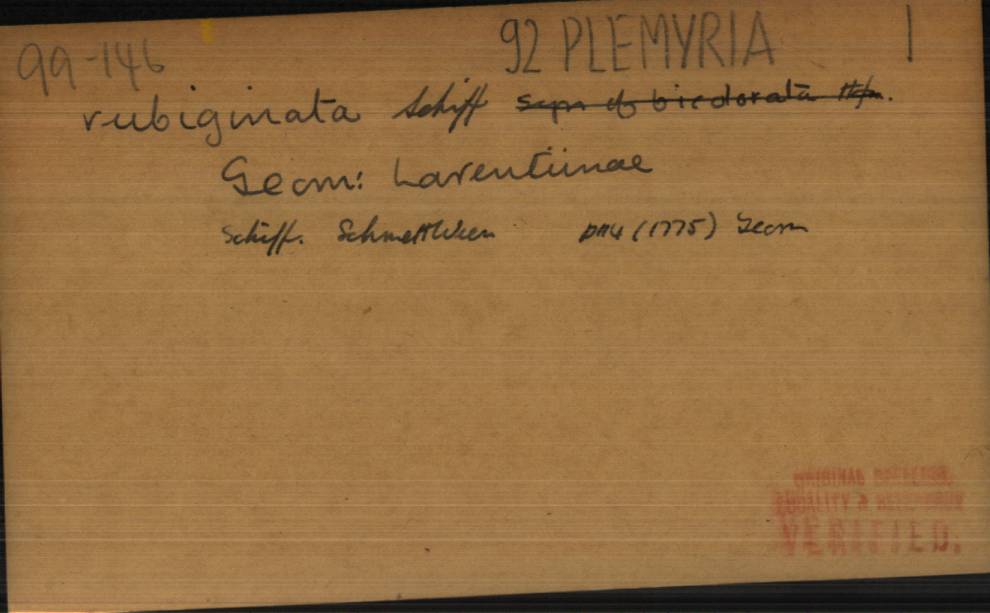 99-146 92 PLEMYRIA 1
rubiginata Schiff syn of bicolorata Hfn.
Geom: Larentiinae
Schiff. Schmett Wien p114 (1775) Geom
ORIGINAL
LOCALITY &
VERIFIED.